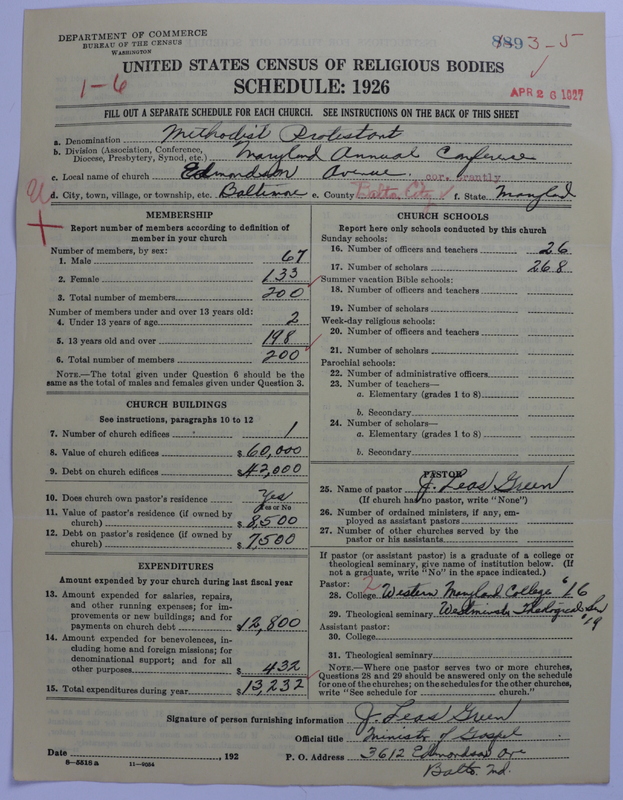 DEPARTMENT OF COMMERCE
BUREAU OF THE CENSUS
WASHINGTON
8893-5
UNITED STATES CENSUS OF RELIGIOUS BODIES
1-6
SCHEDULE: 1926
APR 26 1927
FILL OUT A SEPARATE SCHEDULE FOR EACH CHURCH. SEE INSTRUCTIONS ON THE BACK OF THIS SHEET
a. Denomination Methodist Protestant
b. Division (Association, Conference, Diocese, Presbytery, Synod, etc.) Maryland Annual Conference
c. Local name of church Edmondson Avenue.
d. City, town, village, or township, etc. Baltimore e. County Balto. City f. State Maryland
MEMBERSHIP
Report number of members according to definition of
member in your church
Number of members, by sex:
1. Male 67
2. Female 133
3. Total number of members 200
Number of members under and over 13 years old:
4. Under 13 years of age 2
5. 13 years old and over 198
6. Total number of members 200
NOTE.—The total given under Question 6 should be the
same as the total of males and females given under Question 3.
CHURCH BUILDINGS
See instructions, paragraphs 10 to 12
7. Number of church edifices 1
8. Value of church edifices $ 60,000
9. Debt on church edifices $ 42,000
10. Does church own pastor's residence Yes
Yes or No
11. Value of pastor's residence (if owned by
church) $ 8,500
12. Debt on pastor's residence (if owned by
church) $ 7,500
EXPENDITURES
Amount expended by your church during last fiscal year
13. Amount expended for salaries, repairs,
and other running expenses; for im-
provements or new buildings; and for
payments on church debt $12,800
14. Amount expended for benevolences, in-
cluding home and foreign missions; for
denominational support; and for all
other purposes $ 432
15. Total expenditures during year $ 13,232
CHURCH SCHOOLS
Report here only schools conducted by this church
Sunday schools:
16. Number of officers and teachers 26
17. Number of scholars 268
Summer vacation Bible schools:
18. Number of officers and teachers
19. Number of scholars
Week-day religious schools:
20. Number of officers and teachers
21. Number of scholars
Parochial schools:
22. Number of administrative officers
23. Number of teachers—
a. Elementary (grades 1 to 8)
b. Secondary
24. Number of scholars—
a. Elementary (grades 1 to 8)
b. Secondary
PASTOR
25. Name of pastor J. Leas Green
(If church has no pastor, write "None")
26. Number of ordained ministers, if any, em-
ployed as assistant pastors
27. Number of other churches served by the
pastor or his assistants
If pastor (or assistant pastor) is a graduate of a college or
theological seminary, give name of institution below. (If
not a graduate, write "No" in the space indicated.)
Pastor: 2
28. College Western Maryland College '16
29. Theological seminary Westminster Theological Sem '19
Assistant pastor:
30. College
31. Theological seminary
NOTE.—Where one pastor serves two or more churches,
Questions 28 and 29 should be answered only on the schedule
for one of the churches; on the schedules for the other churches,
write "See schedule for church."
Signature of person furnishing information J. Leas Green
Official title Ministry of Gospel
Date , 192 P. O. Address 3612 Edmondson Ave
8-5518 a 11-9054
Balto. Md.